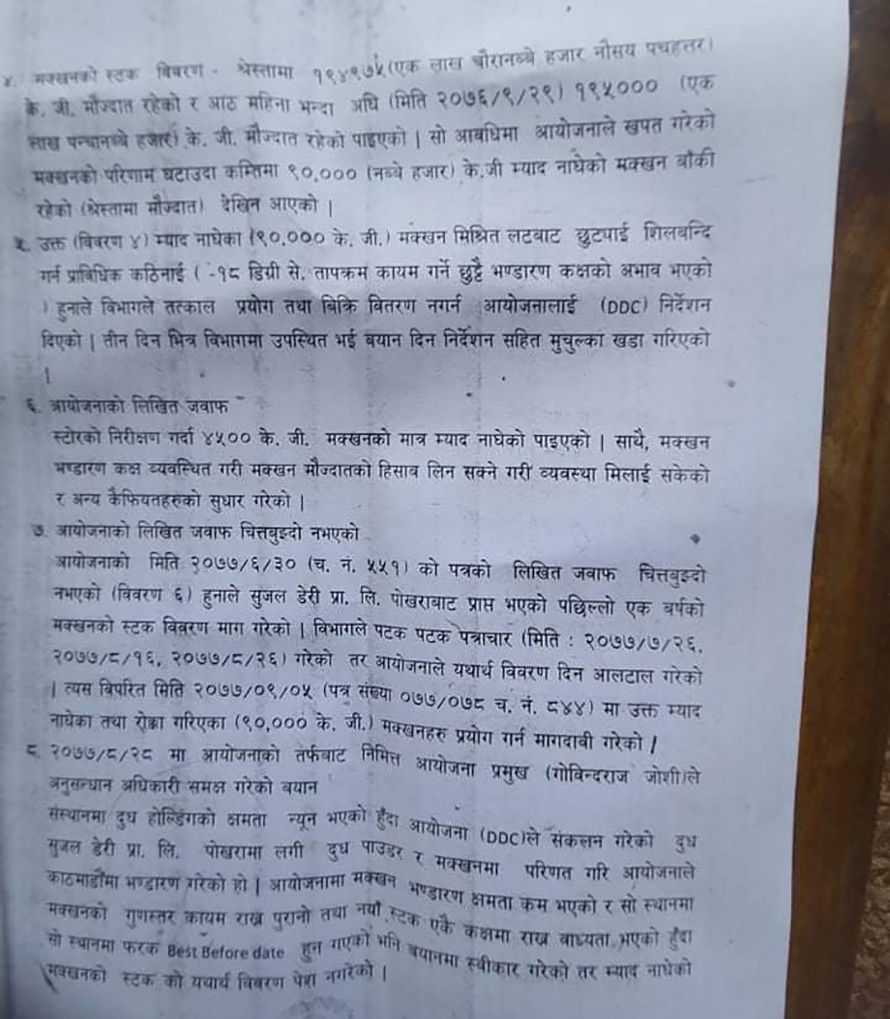 ४. मक्खनको स्टक विवरण - श्रेस्तामा १९४९७५ (एक लाख चौरानब्बे हजार नौसय पचहत्तर)
के. जी. मौज्दात रहेको र आठ महिना भन्दा अघि (मिति २०७६/९/२९) १९५००० (एक
लाख पन्चानब्बे हजार) के. जी. मौज्दात रहेको पाइएको | सो आवधिमा आयोजनाले खपत गरेको
मक्खनको परिणाम घटाउदा कम्तिमा ९०,००० (नब्बे हजार) के.जी म्याद नाघेको मक्खन बाँकी
रहेको (श्रेस्तामा मौज्दात) देखिन आएको |
५. उक्त (विवरण ४) म्याद नाघेका (९०,००० के. जी.) मक्खन मिश्रित लटबाट छुटयाई शिलबन्दि
गर्न प्राबिधिक कठिनाई ( -१८ डिग्री से. तापक्रम कायम गर्ने छुट्टै भण्डारण कक्षको अभाव भएको
) हुनाले विभागले तत्काल प्रयोग तथा बिक्रि वितरण नगर्न आयोजनालाई (DDC) निर्देशन
दिएको | तीन दिन भित्र विभागमा उपस्थित भई बयान दिन निर्देशन सहित मुचुल्का खडा गरिएको
|
६. आयोजनाको लिखित जवाफ
स्टोरको निरीक्षण गर्दा ४५०० के. जी. मक्खनको मात्र म्याद नाघेको पाइएको | साथै, मक्खन
भण्डारण कक्ष व्यवस्थित गरी मक्खन मौज्दातको हिसाब लिन सक्ने गरी व्यवस्था मिलाई सकेको
र अन्य कैफियतहरुको सुधार गरेको |
७. आयोजनाको लिखित जवाफ चित्तबुझ्दो नभएको
आयोजनाको मिति २०७७/६/३० (च. नं. ५५१) को पत्रको लिखित जवाफ चित्तबुझ्दो
नभएको (विवरण ६) हुनाले सुजल डेरी प्रा. लि. पोखराबाट प्राप्त भएको पछिल्लो एक बर्षको
मक्खनको स्टक विवरण माग गरेको | विभागले पटक पटक पत्राचार (मिति : २०७७/७/२६,
२०७७/८/१६, २०७७/८/२६) गरेको तर आयोजनाले यथार्थ विवरण दिन आलटाल गरेको
| त्यस विपरित मिति २०७७/०९/०५ (पत्र संख्या ०७७/०७८ च. नं. ८४४) मा उक्त म्याद
नाघेका तथा रोक्का गरिएका (९०,००० के. जी.) मक्खनहरु प्रयोग गर्न मागदाबी गरेको |
८. २०७७/८/२८ मा आयोजनाको तर्फबाट निमित्त आयोजना प्रमुख (गोविन्दराज जोशी)ले
अनुसन्धान अधिकारी समक्ष गरेको बयान
संस्थानमा दुध होल्डिंगको क्षमता न्यून भएको हुँदा आयोजना (DDC)ले संकलन गरेको दुध
सुजल डेरी प्रा. लि. पोखरामा लगी दुध पाउडर र मक्खनमा परिणत गरि आयोजनाले
काठमाडौंमा भण्डारण गरेको हो | आयोजनामा मक्खन भण्डारण क्षमता कम भएको र सो स्थानमा
मक्खनको गुणस्तर कायम राख्न पुरानो तथा नयाँ स्टक एकै कक्षमा राख्न बाध्यता भएको हुँदा
सो स्थानमा फरक Best Before date हुन गएको भनि बयानमा स्वीकार गरेको तर म्याद नाघेको
मक्खनको स्टक को यथार्थ विवरण पेश नगरेको |